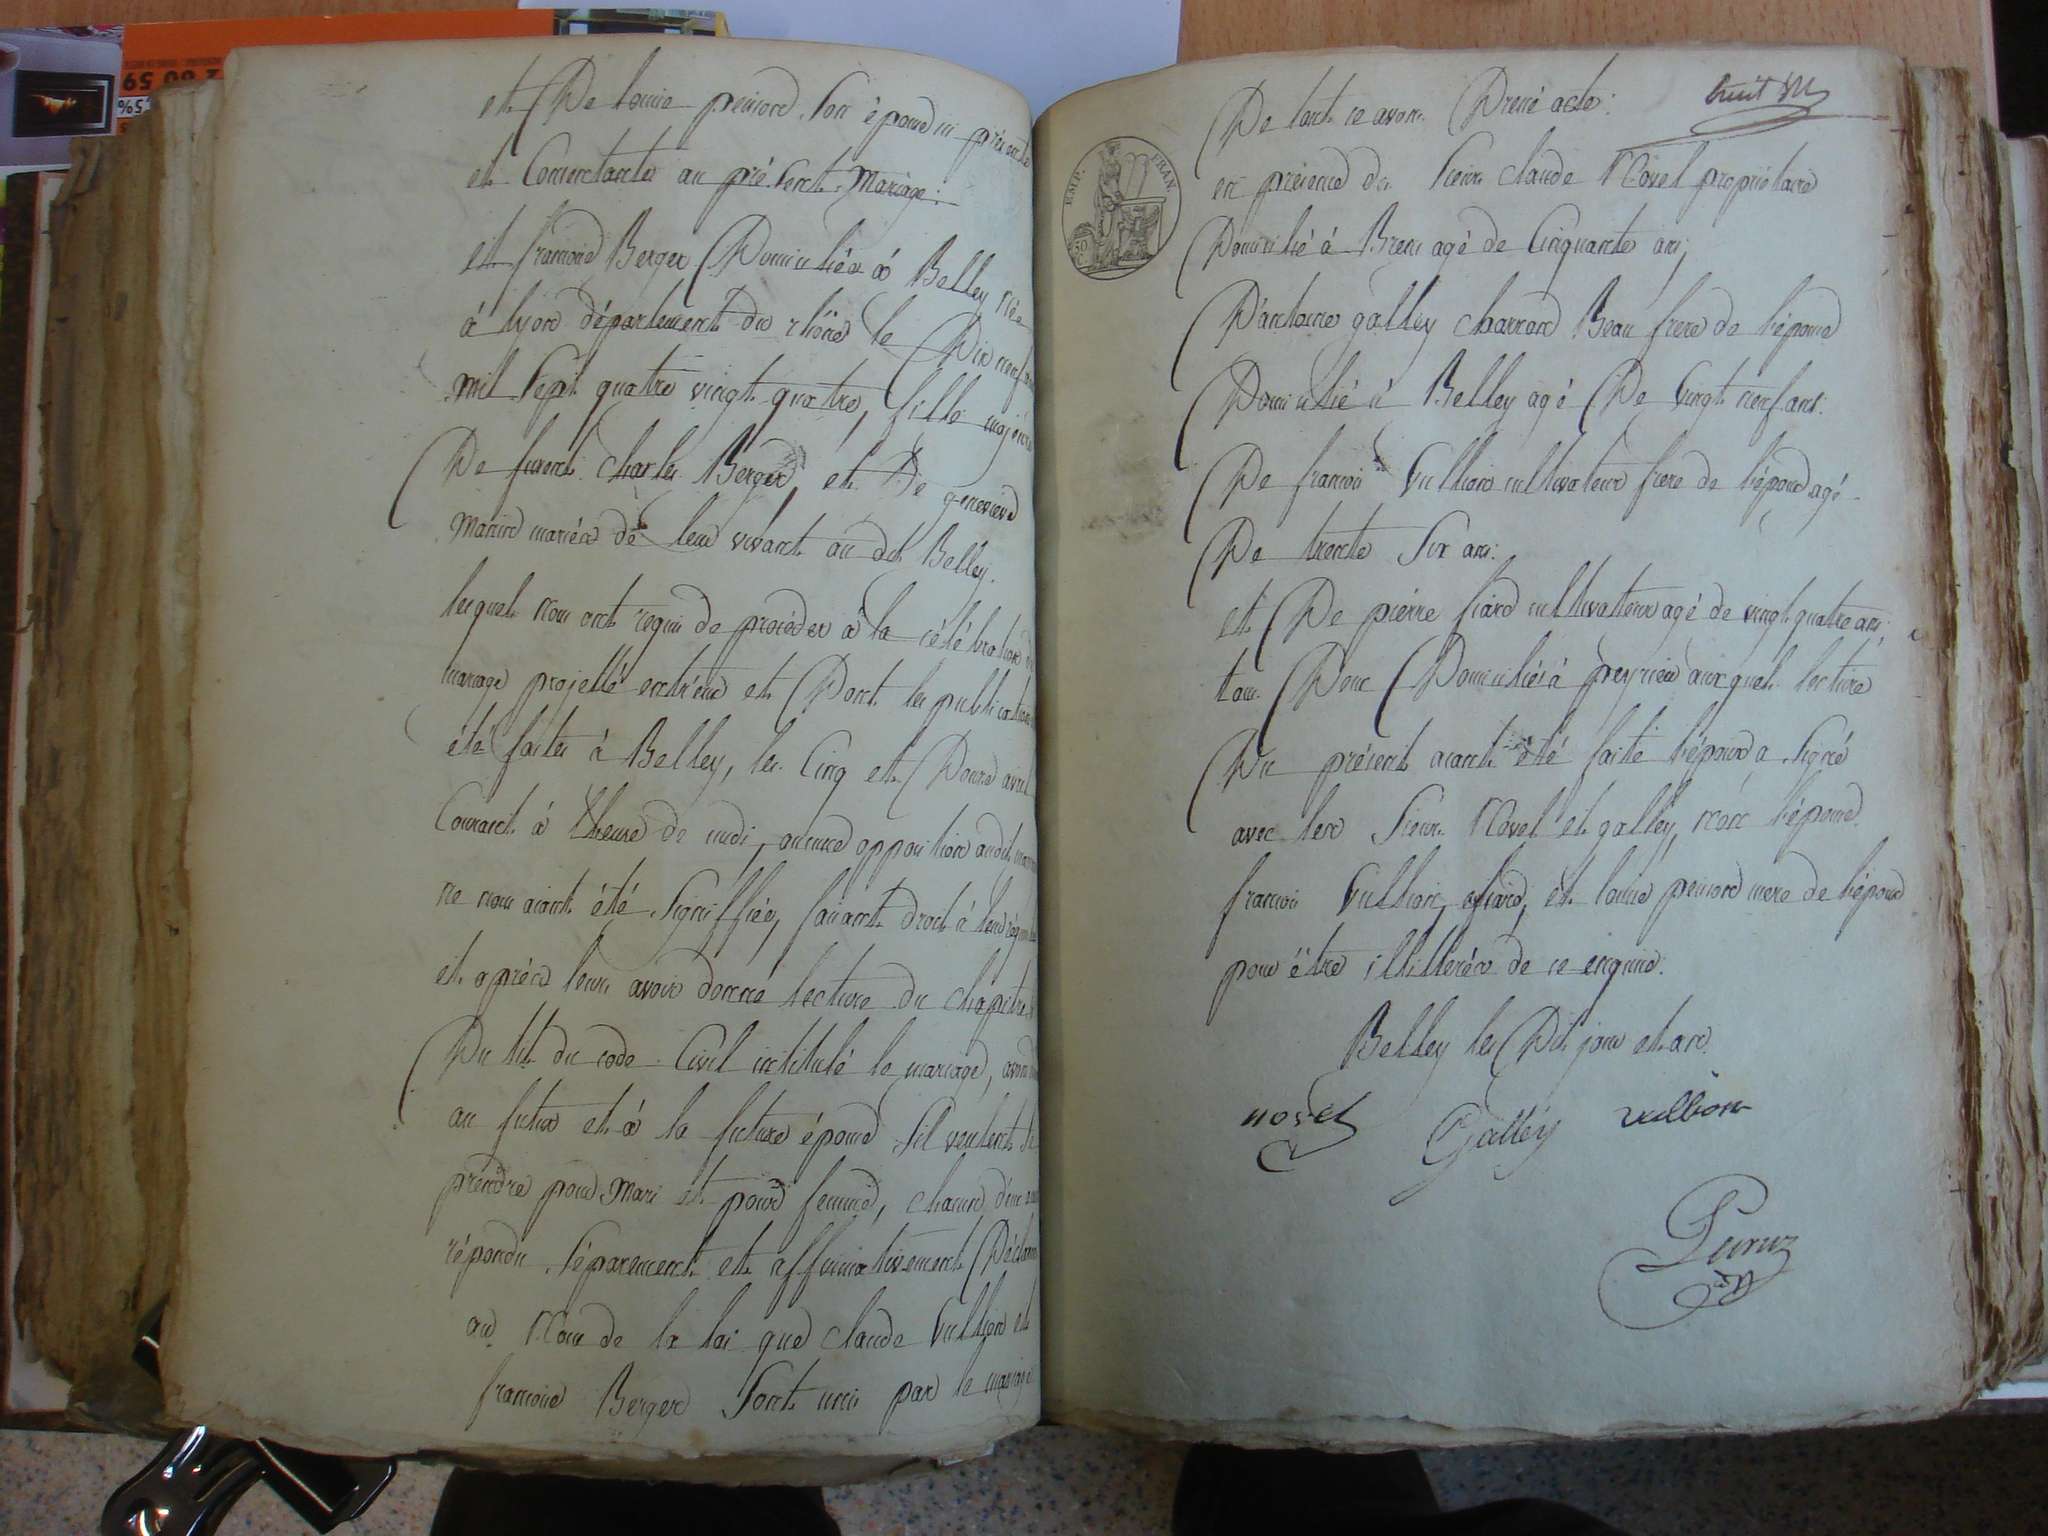 2 00 59
,5%
et De louise penard Son épouse ici présente
et Consentante au présent Mariage:
et francoise Berger Domiciliée à Belley Née
à lyon département du rhône le Dix neuf
mil Sept quatre vingt quatre, fille majeure
De furent Charles Berger, et De genevieve
Marin mariés de leur vivant au dit Belley.
lesquels Nous ont requis de procéder à la célébration du
mariage projetté entr'eux et Dont les publications
été faites à Belley, les Cinq et Douze avril
Courant à l'heure de midi, aucune opposition audit mariage
ne nous aiant été Signiffiée, faisant droit à leur
et après leurs avoir donné lecture du chapitre
Du tit. du code Civil intitulé le mariage, avons
au futur et à la future épouse S'il veulent se
prendre pour Mari et pour femme, chacun d'eux
répondu Séparement et affirmativement Déclarons
au Nom de la loi que Claude Vullion et
francoise Berger Sont unis par le mariage
huit
De tout ce avons Dressé acte:
EMP. FRAN.
50 C
en présence du Sieur Claude Novel propriétaire
Domicilié à Brens agé de Cinquante ans,
D'antoine galley charron Beau frere de l'épouse
Domicilié à Belley agé De Vingt neuf ans.
De francois Vullion cultivateur frere de l'époux agé
De trente Six ans:
et De pierre fiard cultivateur agé de vingt quatre ans,
tous Deux Domiciliés à peyrieu auxquels lecture
Du présent aiant été faite l'époux a Signé
avec les Sieurs Novel et galley, non l'épouse
francois Vullion, fiard, et louise penard mere de l'époux
pour être illitterés de ce enquis.
Belley les Dits jour et an.
novel Galley vullion